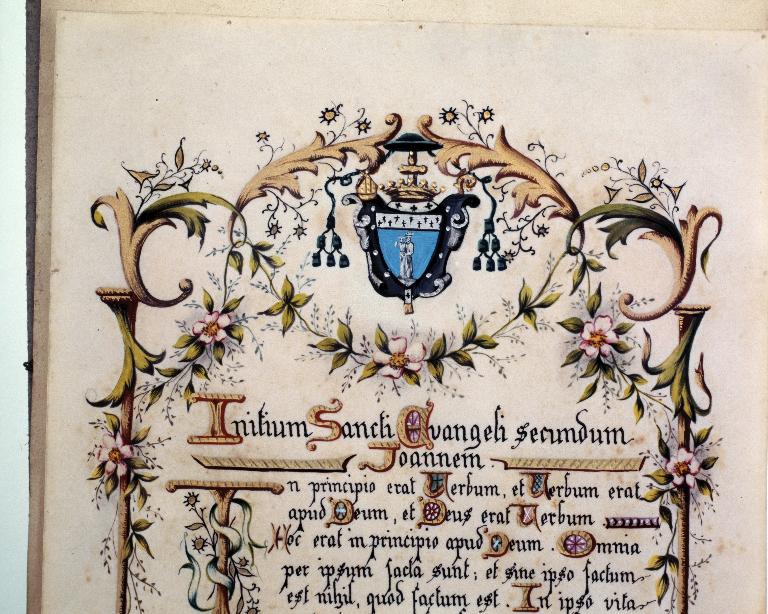 Initium Sancti Evangeli secundum
Joannem.
In principio erat Verbum, et Verbum erat
apud Deum, et Deus erat Verbum
Hoc erat in principio apud Deum. Omnia
per ipsum facta sunt; et sine ipso factum
est nihil, quod factum est. In ipso vita